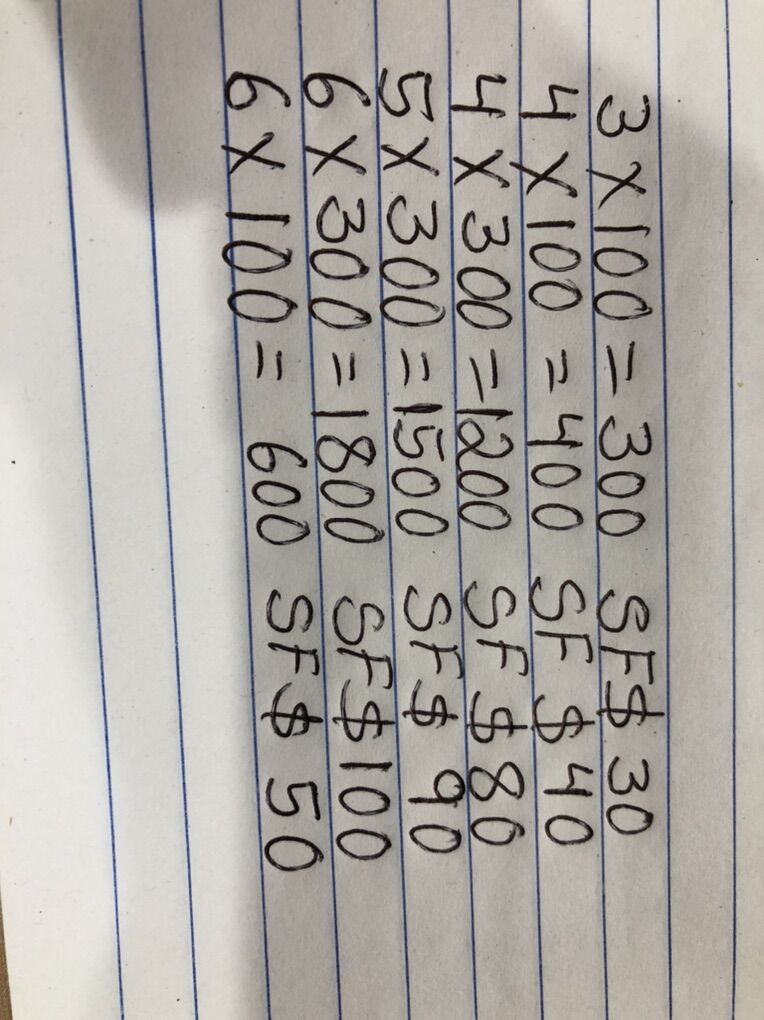 3 X 100 = 300 SF $ 30
4 X 100 = 400 SF $ 40
4 X 300 = 1200 SF $ 80
5 X 300 = 1500 SF $ 90
6 X 300 = 1800 SF $ 100
6 X 100 = 600 SF $ 50